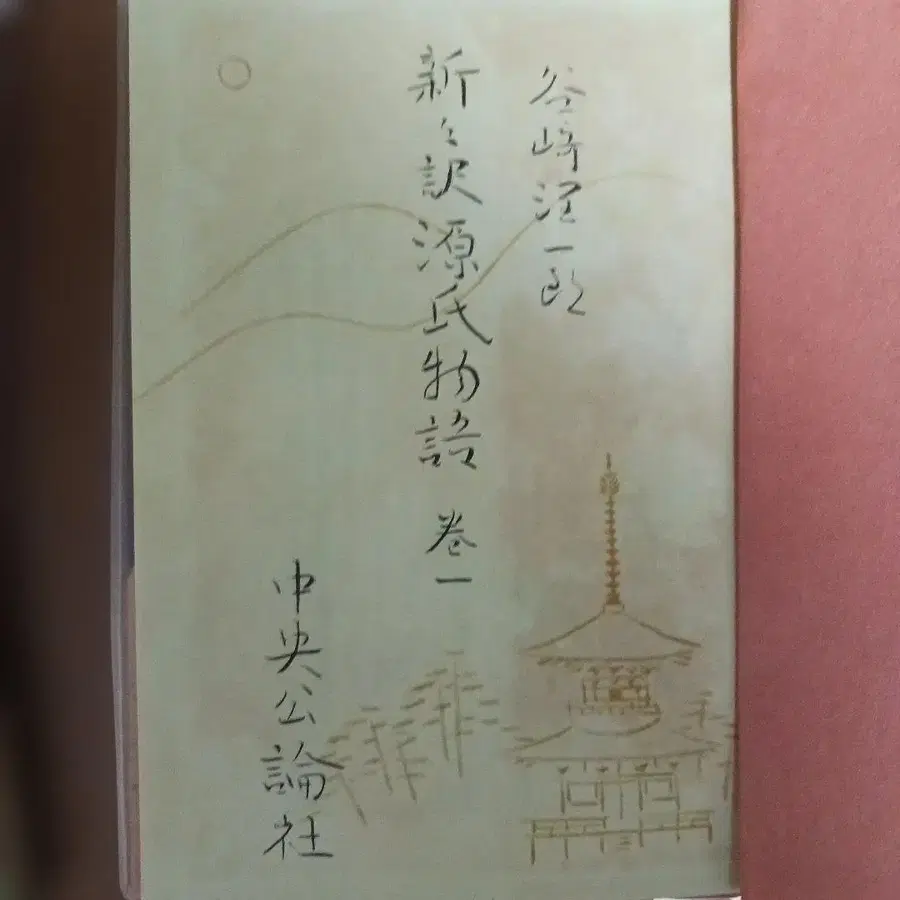 谷崎潤一郎
新々訳源氏物語 巻一
中央公論社